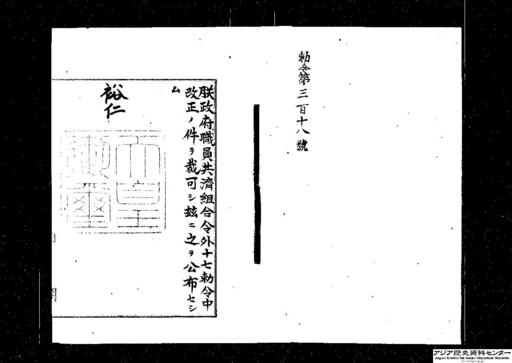 勅令第三百十八號
朕政府職員共済組合令外十七勅令中
改正ノ件ヲ裁可シ玆ニ之ヲ公布セシ
ム
裕仁
天皇御璽
内閣
アジア歴史資料センター
Japan Center for Asian Historical Records